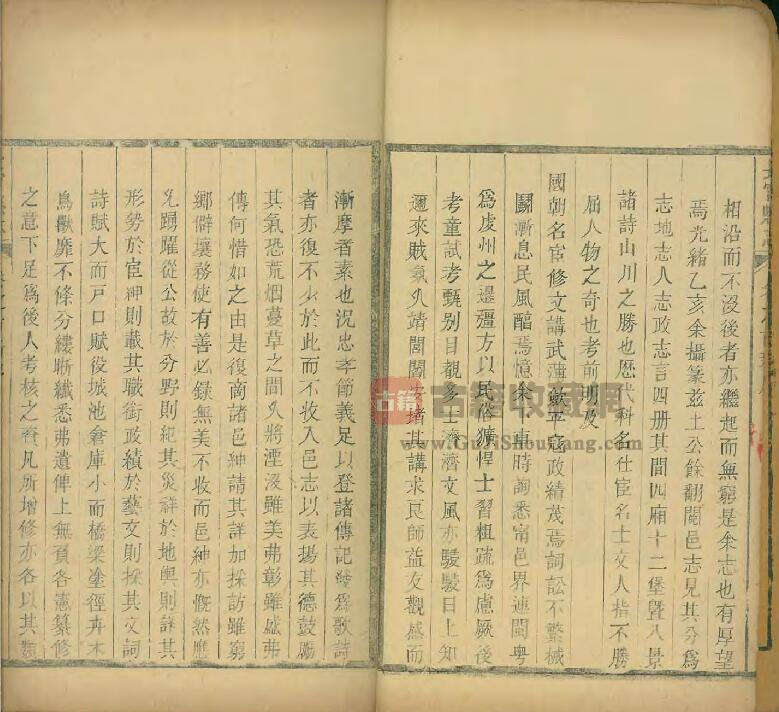 相沿而不沒後者亦繼起而無窮是余志也有厚望
焉光緒乙亥余攝篆玆土公餘翻閱邑志見其分爲
志地志人志政志言四册其間四廂十二堡曁八景
諸詩山川之勝也歷代科名仕宦名士文人指不勝
屈人物之奇也考前明及
國朝名宦修文講武蕩平寇政績茂焉詞訟不繁械
鬬漸息民風醕焉憶余下車時詢悉甯邑界連閩粵
爲虔州之邊疆方以民俗獷悍士習粗疏爲慮厥後
考童試考甄别目觀多士濟濟文風亦駸駸日上知
邇來賊氛久靖閭閻安堵其講求良師益友觀感而
漸摩者素也況忠孝節義足以登諸傳記發爲歌詩
者亦復不少於此而不收入邑志以表揚其德鼓勵
其氣恐荒烟蔓草之間久將湮沒雖美弗彰雖盛弗
傳何惜如之由是復商諸邑紳請其詳加採訪雖窮
鄉僻壤務使有善必録無美不收而邑紳亦慨然應
允踴躍從公故於分野則紀其災祥於地輿則詳其
形勢於宦紳則載其職銜政績於藝文則採其文詞
詩賦大而戸口賦役城池倉庫小而橋梁塗徑卉木
鳥獸靡不條分縷晰纖悉弗遺俾上無負各憲纂修
之意下足爲後人考核之資凡所增修亦各以其類
古籍
古籍收藏網
www.GujiShoucang.com